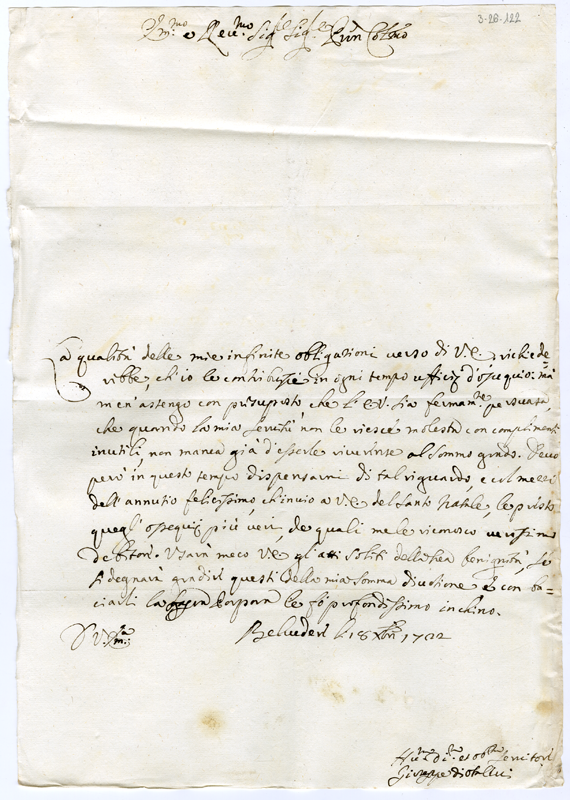 3-28-122
Em.mo e Rev.mo Sig.r Sig.r P.ron Col.mo
La qualità delle mie infinite obligazioni verso di V.E. richiede=
rebbe, ch'io le contribuissi in ogni tempo ufficij d'ossequio: mà
m'en'astengo con presuposto che l'E.V. sia fermam.te persuasa,
che quando la mia servitù non le riesce molesta con complimenti
inutili, non manca già d'esserle riverente al sommo grado. Devo
però in questo tempo dispensarmi di tal riguardo, e col mezzo
dell'annutio felicissimo, ch'invio a V.E. del Santo Natale, le presto
quegl'ossequij più veri, de quali me le riconosco verissimo
debitore. Usarà meco V.E. gl'atti soliti della sua benignità, se
si degnarà gradire questi della mia somma divotione, e con ba=
ciarli la sagra Porpora le fò profondissimo inchino.
D. V. Em.za
Belvedere li 18 Xbre 1722
Hu.mo Di.mo et ob.mo Servitore
Giuseppe